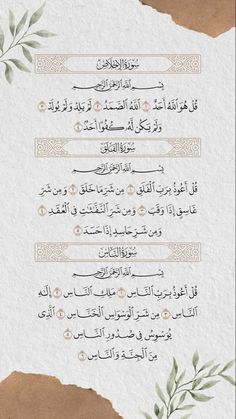 سُورَةُ الإِخْلَاصِ
بِسْمِ اللَّهِ الرَّحْمَٰنِ الرَّحِيمِ
قُلْ هُوَ اللَّهُ أَحَدٌ ۝ اللَّهُ الصَّمَدُ ۝ لَمْ يَلِدْ وَلَمْ يُولَدْ ۝
وَلَمْ يَكُن لَّهُ كُفُوًا أَحَدٌ ۝
سُورَةُ الفَلَقِ
بِسْمِ اللَّهِ الرَّحْمَٰنِ الرَّحِيمِ
قُلْ أَعُوذُ بِرَبِّ الْفَلَقِ ۝ مِن شَرِّ مَا خَلَقَ ۝ وَمِن شَرِّ
غَاسِقٍ إِذَا وَقَبَ ۝ وَمِن شَرِّ النَّفَّاثَاتِ فِي الْعُقَدِ ۝
وَمِن شَرِّ حَاسِدٍ إِذَا حَسَدَ ۝
سُورَةُ النَّاسِ
بِسْمِ اللَّهِ الرَّحْمَٰنِ الرَّحِيمِ
قُلْ أَعُوذُ بِرَبِّ النَّاسِ ۝ مَلِكِ النَّاسِ ۝ إِلَٰهِ
النَّاسِ ۝ مِن شَرِّ الْوَسْوَاسِ الْخَنَّاسِ ۝ الَّذِي
يُوَسْوِسُ فِي صُدُورِ النَّاسِ ۝
مِنَ الْجِنَّةِ وَالنَّاسِ ۝